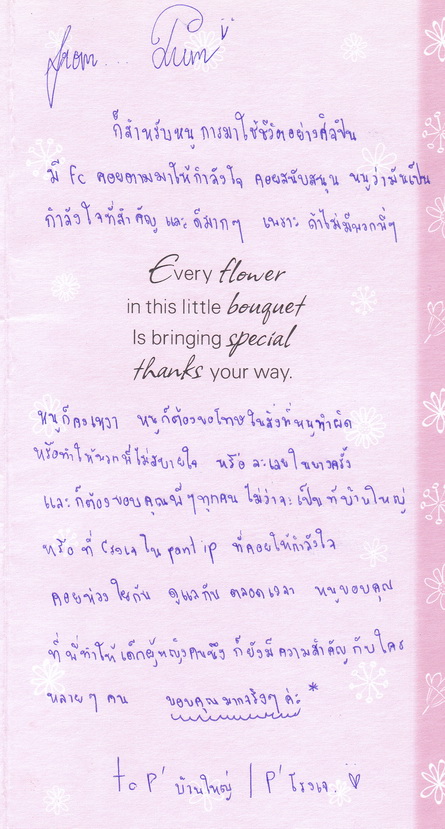 from... Pum
ก็สำหรับหนู การมาใช้ชีวิตอย่างศิลปิน
มี Fc คอยตามมาให้กำลังใจ คอยสนับสนุน หนูว่ามันเป็น
กำลังใจที่สำคัญ และ ดีมากๆ เพราะ ถ้าไม่มีพวกพี่ๆ
Every flower
in this little bouquet
Is bringing special
thanks your way.
หนูก็คงเหงา หนูก็ต้องขอโทษในสิ่งที่หนูทำผิด
หรือทำให้พวกพี่ไม่สบายใจ หรือ ละเลยในบางครั้ง
และ ก็ต้องขอบคุณพี่ๆทุกคน ไม่ว่าจะเป็น ที่บ้านใหญ่
หรือ ที่ โรงเจ ใน pantip ที่คอยให้กำลังใจ
คอยห่วงใยกัน ดูแลกัน ตลอดเวลา หนูขอบคุณ
ที่พี่ทำให้เด็กผู้หญิงคนนึง ก็ยังมีความสำคัญกับใคร
หลายๆ คน ขอบคุณมากจริงๆ ค่ะ *
to P' บ้านใหญ่ / P' โรงเจ